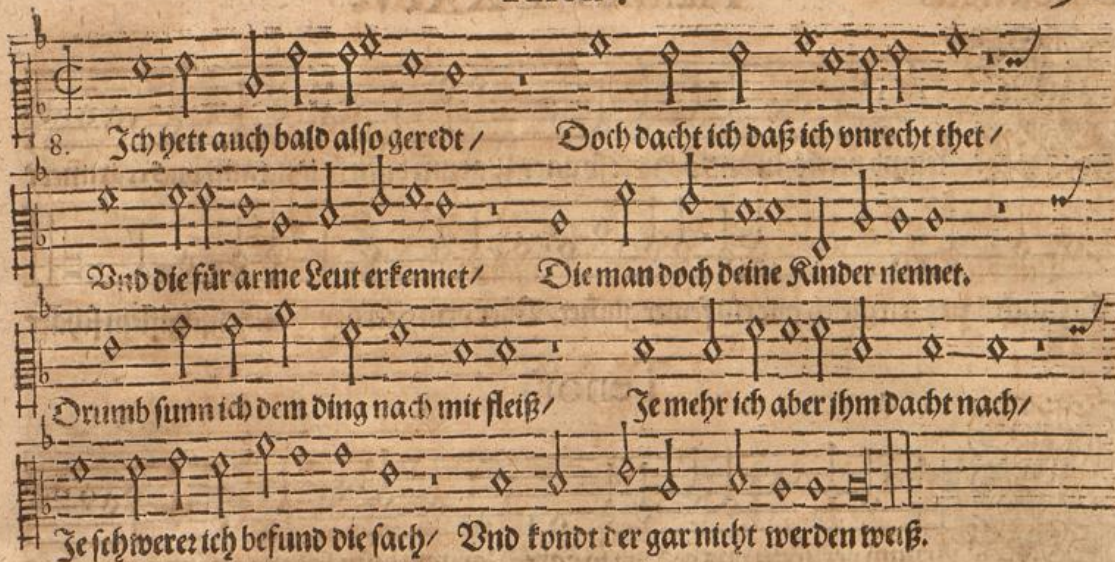 8. Ich hett auch bald also geredt / Doch dacht ich daß ich vnrecht thet /
Vnd die für arme Leut erkennet / Die man doch deine Kinder nennet.
Drumb sunn ich dem ding nach mit fleiß / Je mehr ich aber jhm dacht nach /
Je schwerer ich befund die sach / Vnd kondt der gar nicht werden weiß.